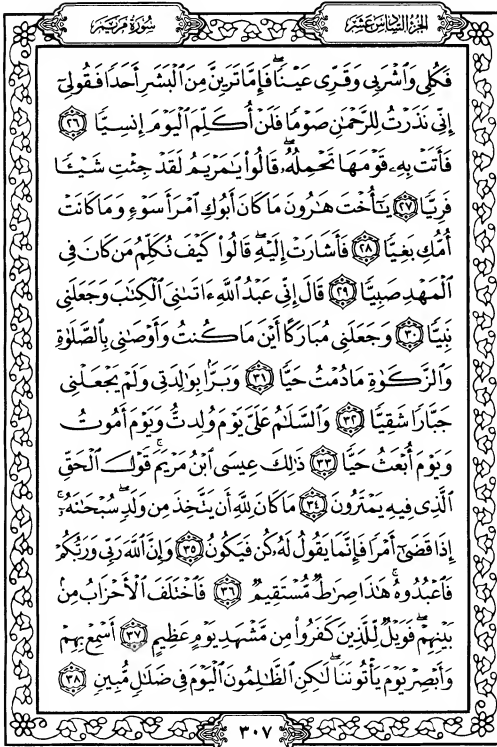 سُورَةُ مَرْيَم الجُزْءُ السَّادِسَ عَشَرَ
فَكُلِى وَٱشْرَبِى وَقَرِّى عَيْنًا ۖ فَإِمَّا تَرَيِنَّ مِنَ ٱلْبَشَرِ أَحَدًا فَقُولِىٓ
إِنِّى نَذَرْتُ لِلرَّحْمَٰنِ صَوْمًا فَلَنْ أُكَلِّمَ ٱلْيَوْمَ إِنسِيًّا ٢٦
فَأَتَتْ بِهِۦ قَوْمَهَا تَحْمِلُهُۥ ۖ قَالُوا۟ يَٰمَرْيَمُ لَقَدْ جِئْتِ شَيْـًٔا
فَرِيًّا ٢٧ يَٰٓأُخْتَ هَٰرُونَ مَا كَانَ أَبُوكِ ٱمْرَأَ سَوْءٍ وَمَا كَانَتْ
أُمُّكِ بَغِيًّا ٢٨ فَأَشَارَتْ إِلَيْهِ ۖ قَالُوا۟ كَيْفَ نُكَلِّمُ مَن كَانَ فِى
ٱلْمَهْدِ صَبِيًّا ٢٩ قَالَ إِنِّى عَبْدُ ٱللَّهِ ءَاتَىٰنِىَ ٱلْكِتَٰبَ وَجَعَلَنِى
نَبِيًّا ٣٠ وَجَعَلَنِى مُبَارَكًا أَيْنَ مَا كُنتُ وَأَوْصَٰنِى بِٱلصَّلَوٰةِ
وَٱلزَّكَوٰةِ مَا دُمْتُ حَيًّا ٣١ وَبَرًّۢا بِوَٰلِدَتِى وَلَمْ يَجْعَلْنِى
جَبَّارًا شَقِيًّا ٣٢ وَٱلسَّلَٰمُ عَلَىَّ يَوْمَ وُلِدتُّ وَيَوْمَ أَمُوتُ
وَيَوْمَ أُبْعَثُ حَيًّا ٣٣ ذَٰلِكَ عِيسَى ٱبْنُ مَرْيَمَ ۚ قَوْلَ ٱلْحَقِّ
ٱلَّذِى فِيهِ يَمْتَرُونَ ٣٤ مَا كَانَ لِلَّهِ أَن يَتَّخِذَ مِن وَلَدٍ ۖ سُبْحَٰنَهُۥٓ ۚ
إِذَا قَضَىٰٓ أَمْرًا فَإِنَّمَا يَقُولُ لَهُۥ كُن فَيَكُونُ ٣٥ وَإِنَّ ٱللَّهَ رَبِّى وَرَبُّكُمْ
فَٱعْبُدُوهُ ۚ هَٰذَا صِرَٰطٌ مُّسْتَقِيمٌ ٣٦ فَٱخْتَلَفَ ٱلْأَحْزَابُ مِنۢ
بَيْنِهِمْ ۖ فَوَيْلٌ لِّلَّذِينَ كَفَرُوا۟ مِن مَّشْهَدِ يَوْمٍ عَظِيمٍ ٣٧ أَسْمِعْ بِهِمْ
وَأَبْصِرْ يَوْمَ يَأْتُونَنَا ۖ لَٰكِنِ ٱلظَّٰلِمُونَ ٱلْيَوْمَ فِى ضَلَٰلٍ مُّبِينٍ ٣٨
٣٠٧